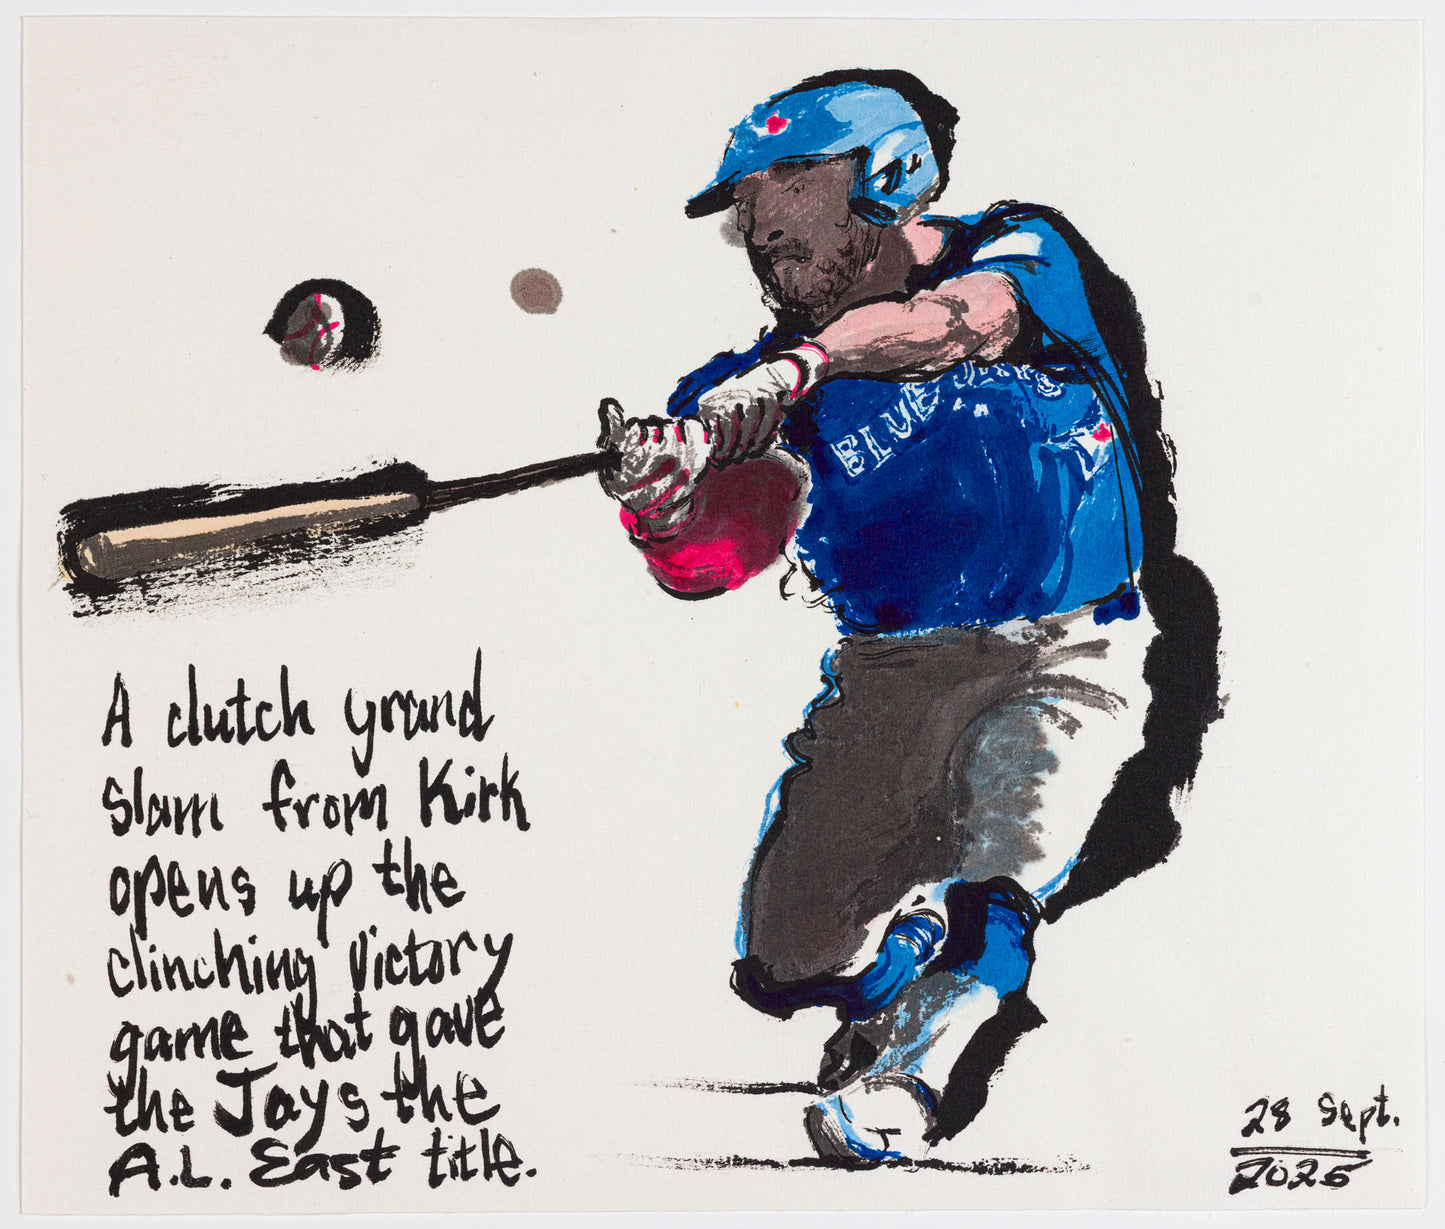 BLUE JAYS
A clutch grand
slam from Kirk
opens up the
clinching victory
game that gave
the Jays the
A.L. East title.
28 Sept.
2025